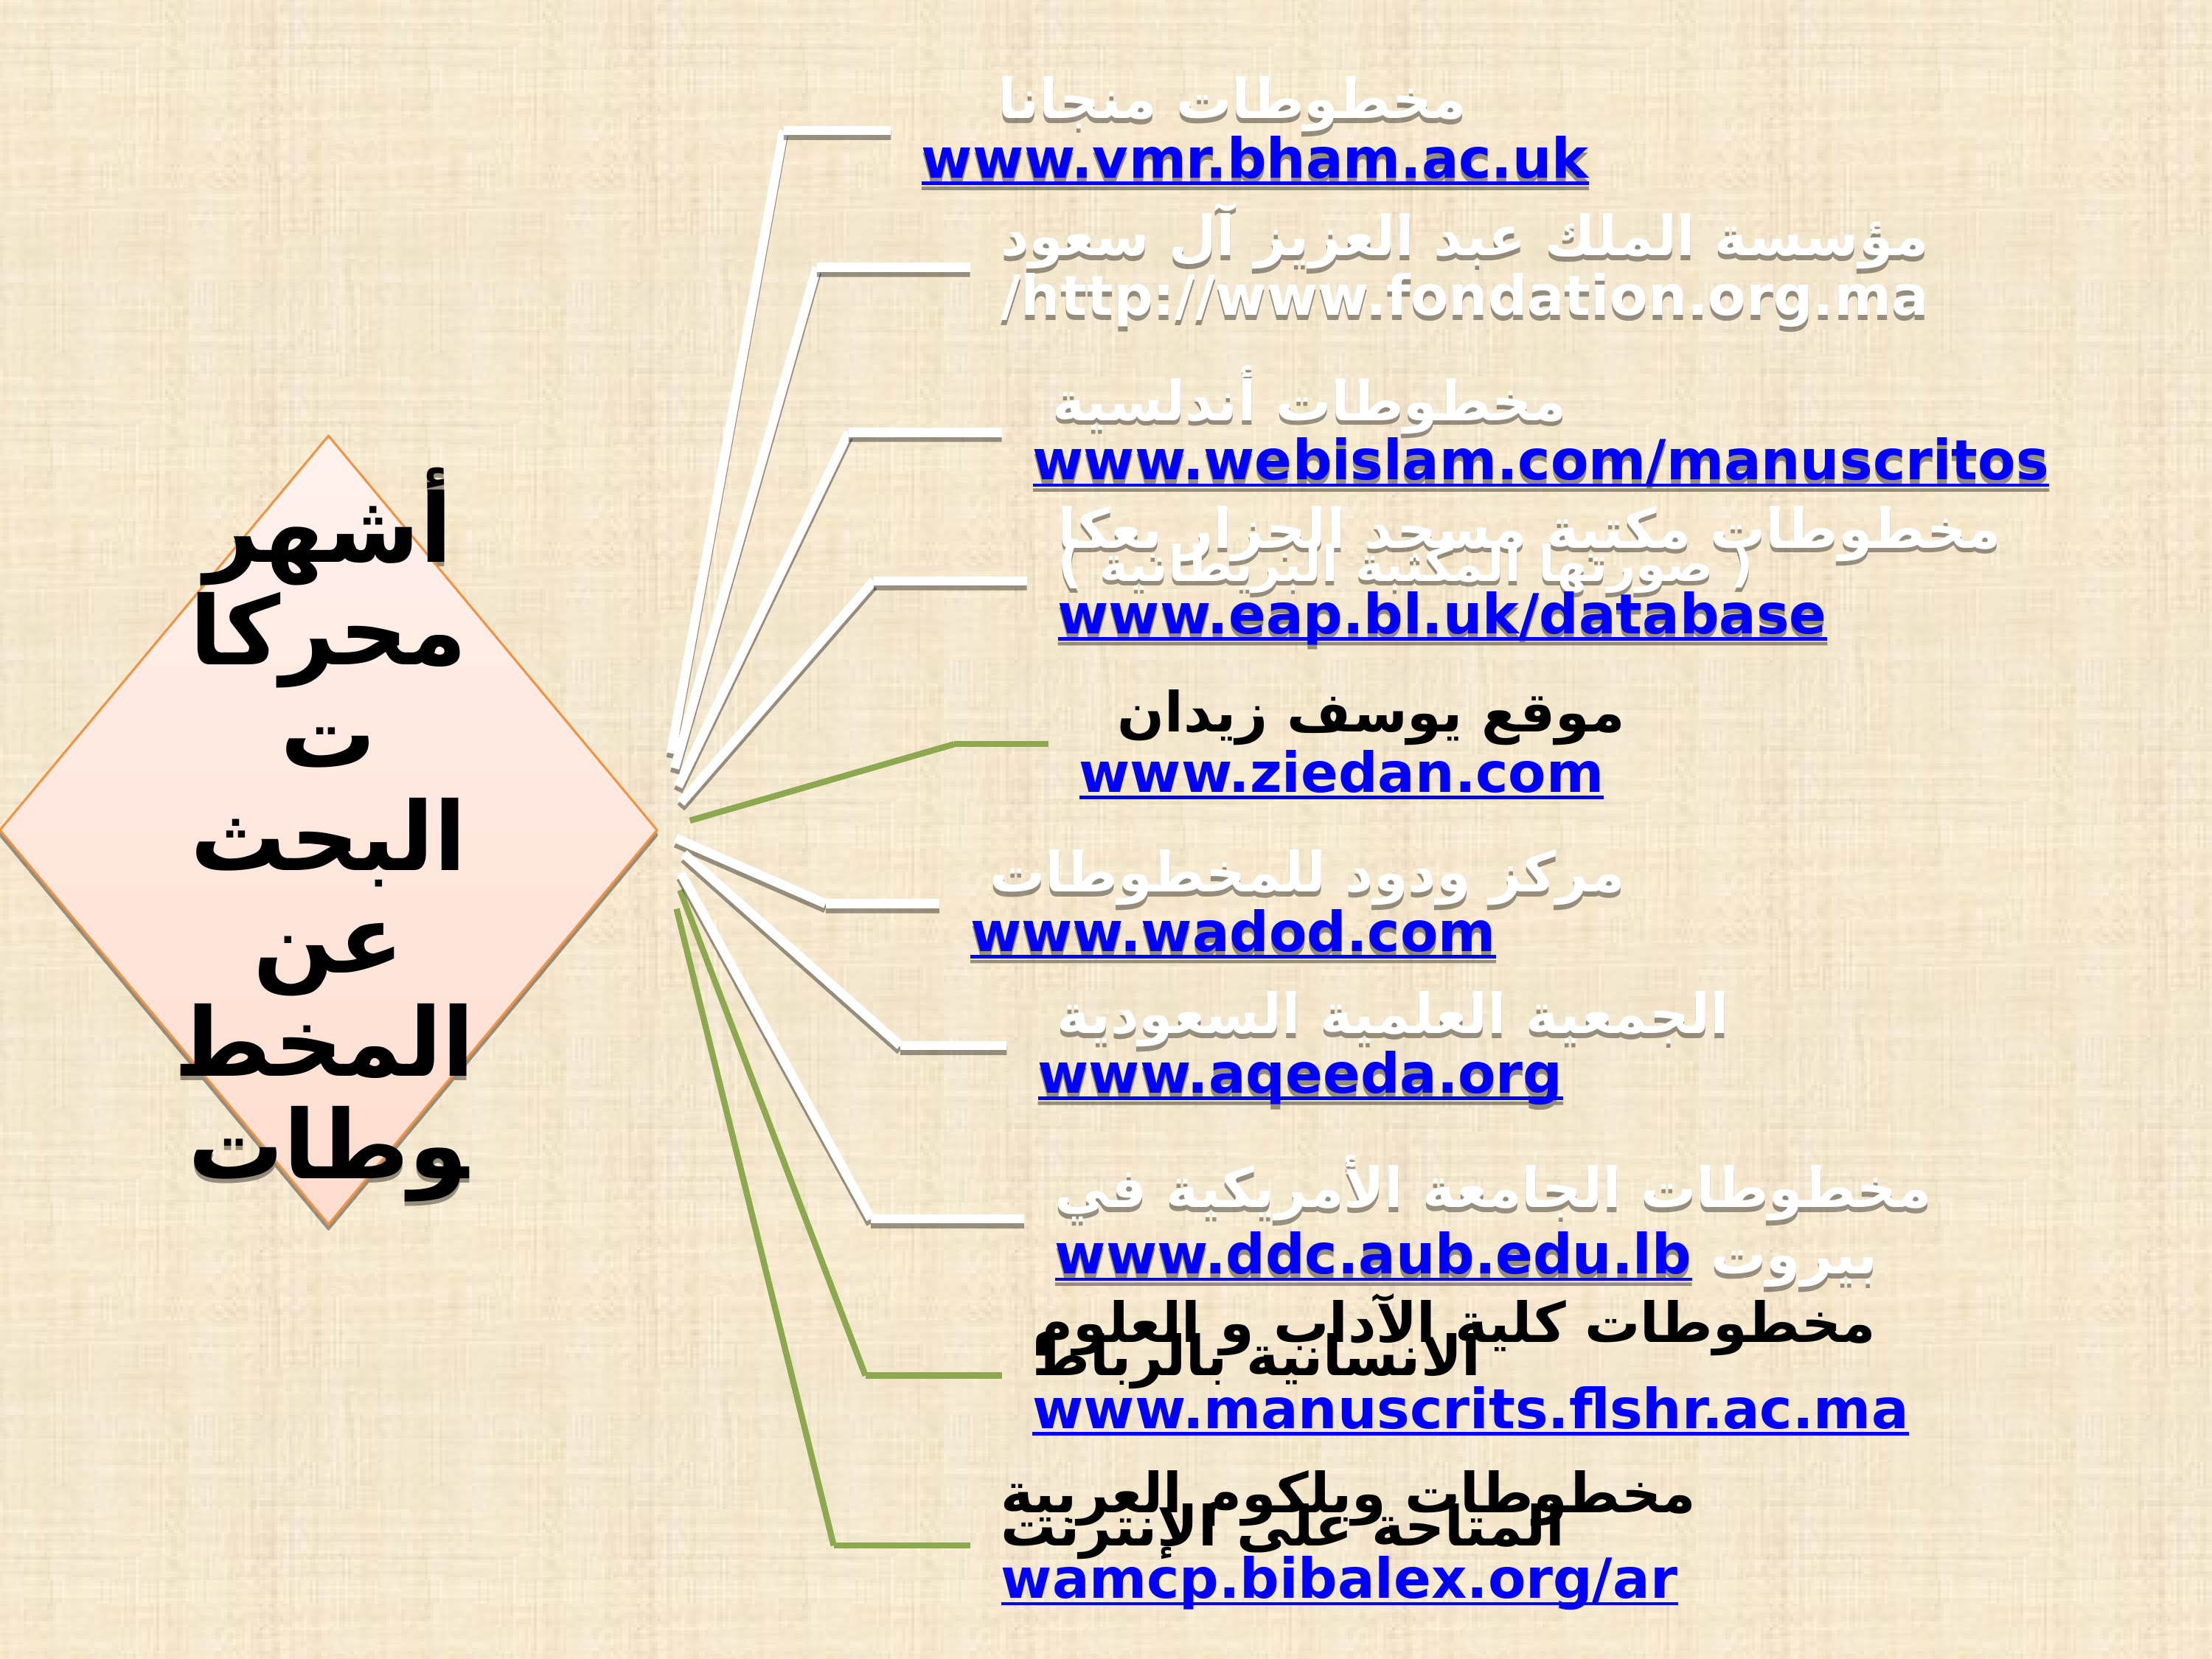 أشهر
محركا
ت
البحث
عن
المخط
وطات
مخطوطات منجانا
www.vmr.bham.ac.uk
مؤسسة الملك عبد العزيز آل سعود
/http://www.fondation.org.ma
مخطوطات أندلسية
www.webislam.com/manuscritos
مخطوطات مكتبة مسجد الجزار بعكا
( صورتها المكتبة البريطانية )
www.eap.bl.uk/database
موقع يوسف زيدان
www.ziedan.com
مركز ودود للمخطوطات
www.wadod.com
الجمعية العلمية السعودية
www.aqeeda.org
مخطوطات الجامعة الأمريكية في
بيروت www.ddc.aub.edu.lb
مخطوطات كلية الآداب و العلوم
الانسانية بالرباط
www.manuscrits.flshr.ac.ma
مخطوطات ويلكوم العربية
المتاحة على الإنترنت
wamcp.bibalex.org/ar